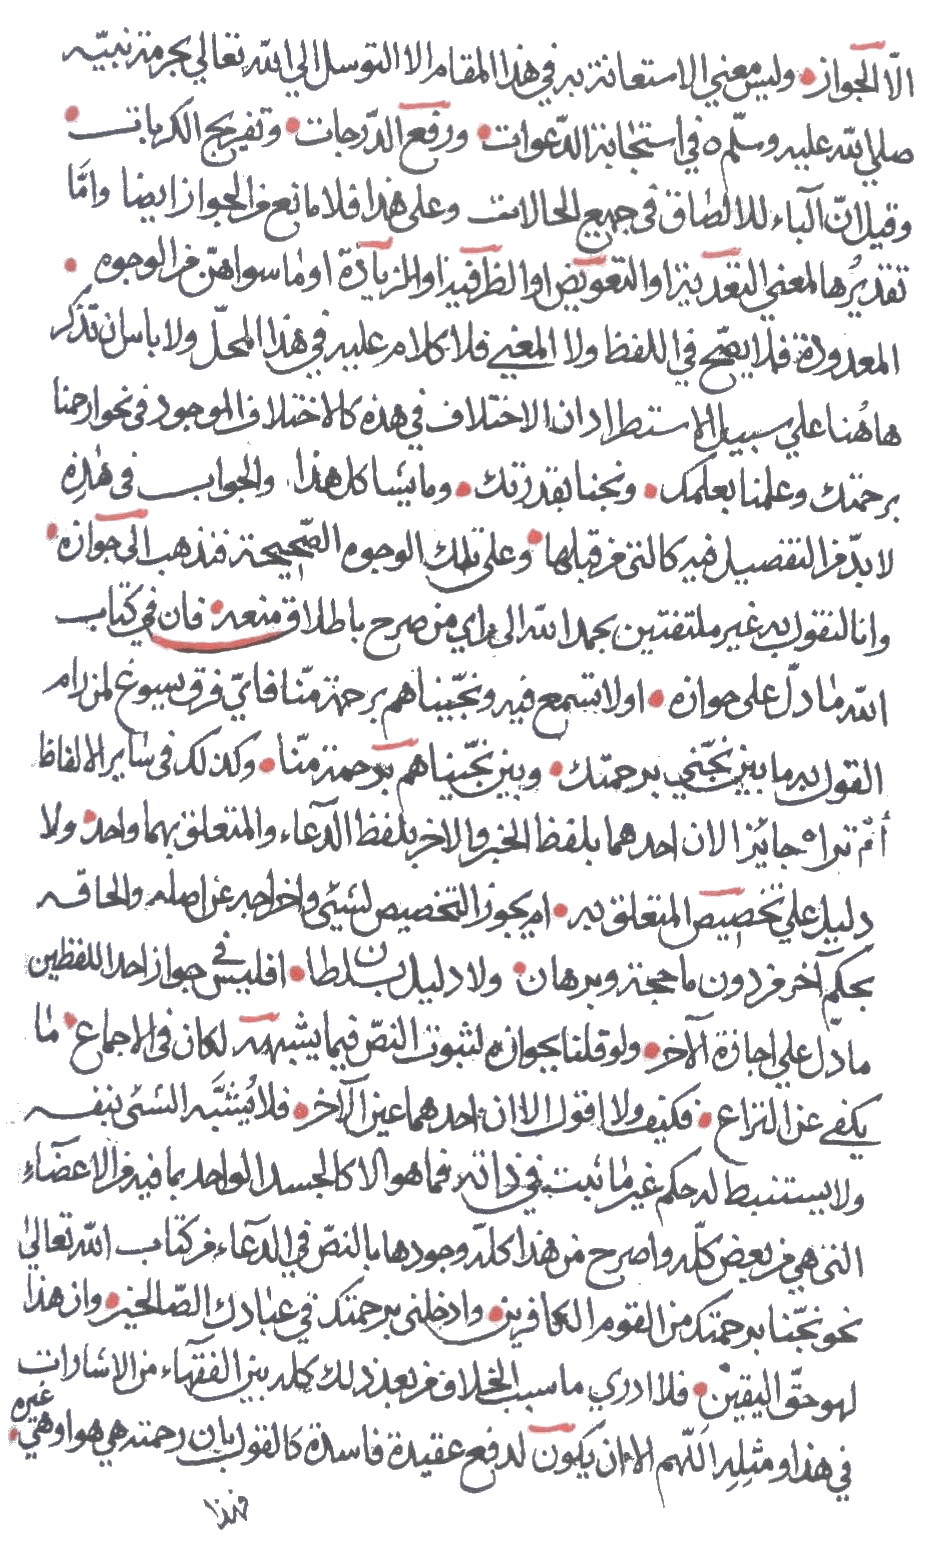 الّا الجواز • وليس معني الاستعانة به في هذا المقام الا التوسل الي الله تعالي بحرمة نبيّه
صلي الله عليه وسلّم ٥ في استجابة الدّعوات • ورفع الدّرجات • وتفريج الكربات •
وقيل انّ الباء للالصاق في جميع الحالات وعلي هذا فلا مانع من الجواز ايضا وامّا
تقديرُها لمعني التعدية او التعويض او الظرفية او الزيادة او ما سواهنّ من الوجوه •
المعدودة فلا يصّح في اللفظ ولا المعني فلا كلام عليه في هذا المحلّ ولا باس ان تذكر
هاهُنا علي سبيل الاستطراد ان الاختلاف في هذه كالاختلاف الموجود في نحو ارحمنا
برحمتك وعلمنا بعلمك • ونجنا بقدرتك • وما يشا كل هذا والجواب في هٰذِهِ
لا بدّ من التفصيل فيه كالتي من قبلها • وعلي تلك الوجوه الصّحيحة فنذهب الي جوازه •
وانا لنقول به غير ملتفتين بحمد الله الي راي من صرح باطلاق منعه • فان في كتاب
الله ما دلّ علي جوازه • اولا تسمع فيه ونجّيناهم برحمة منّا فايّ فرق يسوغ لمن رام
القول به ما بين نجّني برحمتك • وبين نجّيناهم برحمة منّا • وكذلك في ساير الالفاظ
أمْ تراه جايزا لان احدهما بلفظ الخبر والاخر بلفظ الدّعاء والمتعلق بهما واحد • ولا
دليل علي تخصيص المتعلق به • ام يجوز التخصيص لشئي واخراجه عن اصله والحاقه
بحكم آخر من دون ما حجة وبرهان • ولا دليل بسلطان • افليس في جواز احد اللفظين
ما دلّ علي اجازة الآخر • ولو قلنا بجوازه لثبوت النصّ فيما يشبهه لكان في الاجماع • ما
يكفي عن النزاع • فكيف ولا اقول الا ان احدهما عين الآخر • فلا يُشبَّه الشئي بنفسه
ولا يستنبط له حكم غير ما ثبت في ذاته فما هو الا كالجسد الواحد بما فيه من الاعضاء
التي هي من بعض كلّه واصرح من هذا كلّه وجودها بالنصّ في الدعاء من كتاب الله تعالي
نحو نجّنا برحمتك من القوم الكافرين • وادخلني برحمتك في عبادك الصّالحين • وان هذا
لهو حقّ اليقين • فلا ادري ما سبب الخلاف من بعد ذلك كله بين الفقهاء من الاشارات
في هذا ومثلِهِ اللّهم الا ان يكون لدفع عقيدة فاسدة كالقول بان رحمته هي هو او هي غيره •
فهذا